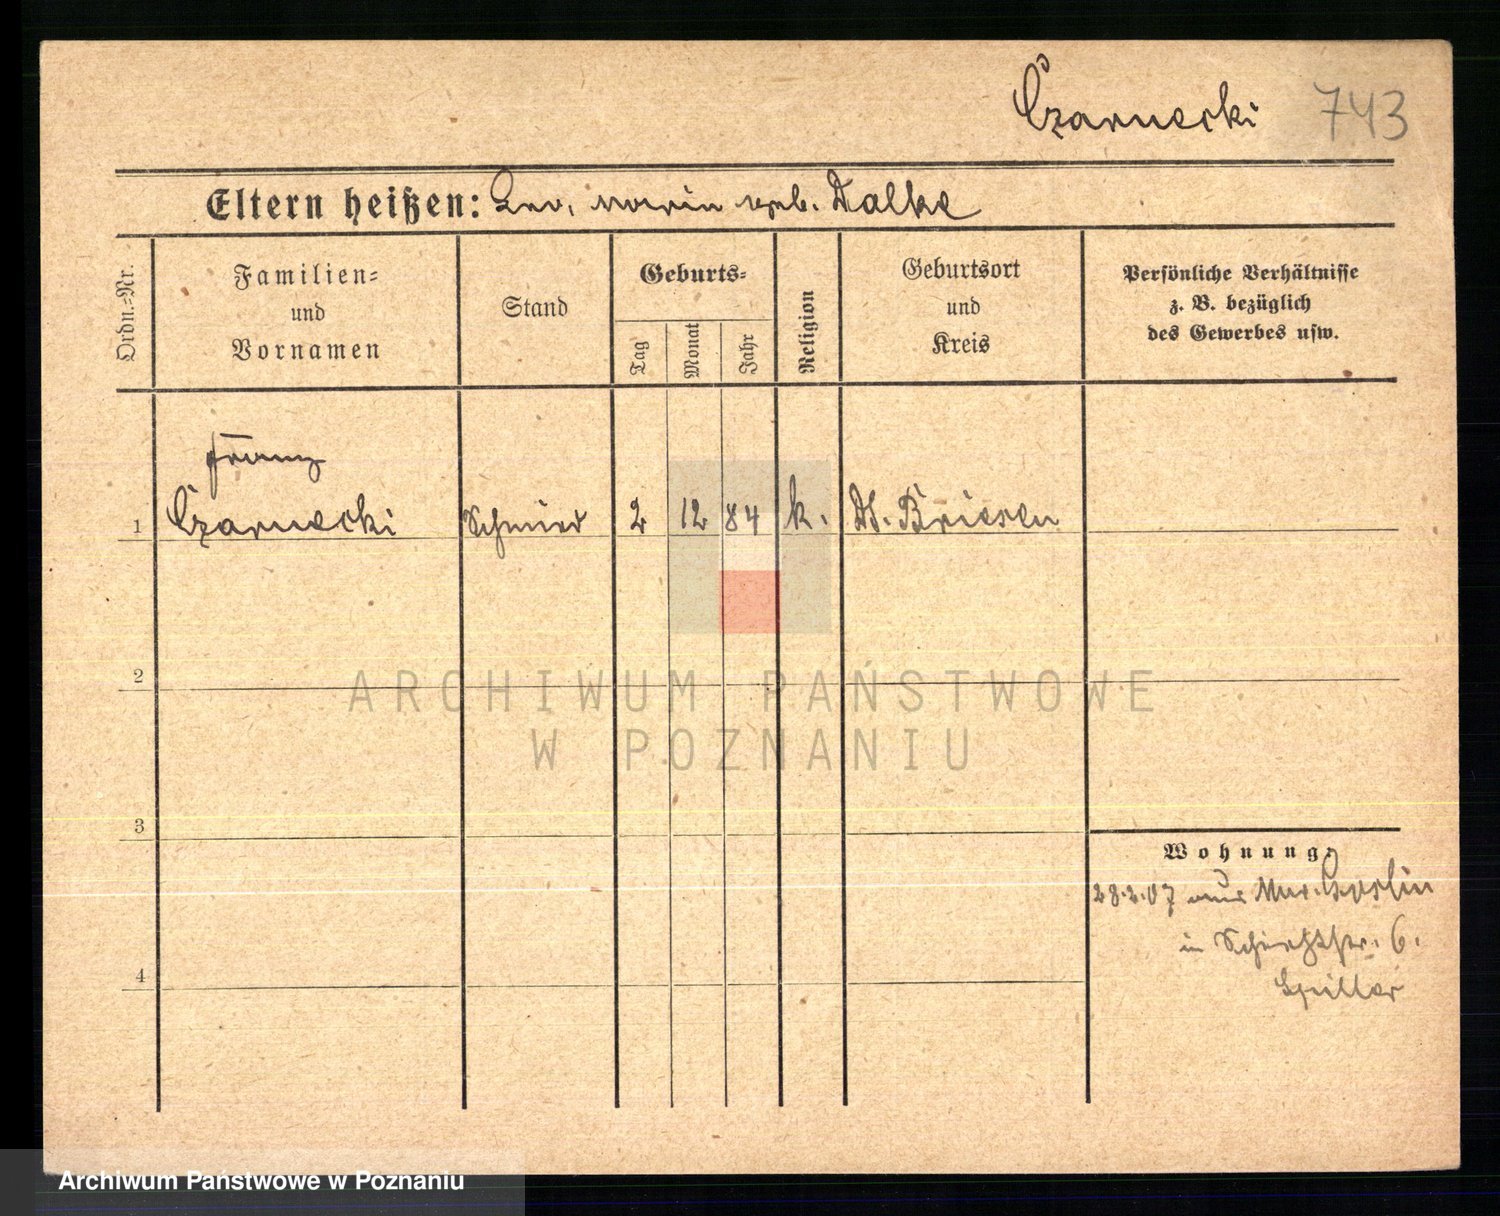 Czarnecki 743
Eltern heißen: Leo. Marie geb. Dalke
Ordn.=Nr.
Familien=
und
Vornamen
Stand
Geburts=
Tag
Monat
Jahr
Religion
Geburtsort
und
Kreis
Persönliche Verhältnisse
z. B. bezüglich
des Gewerbes usw.
Franz
1 Czarnecki Schmied 2 12 84 k. Dt. Briesen
2
ARCHIWUM PAŃSTWOWE
W POZNANIU
3
Wohnung:
28.2.07 aus Mur. Goslin
in Schichtstr. 6.
4
Spiller
Archiwum Państwowe w Poznaniu